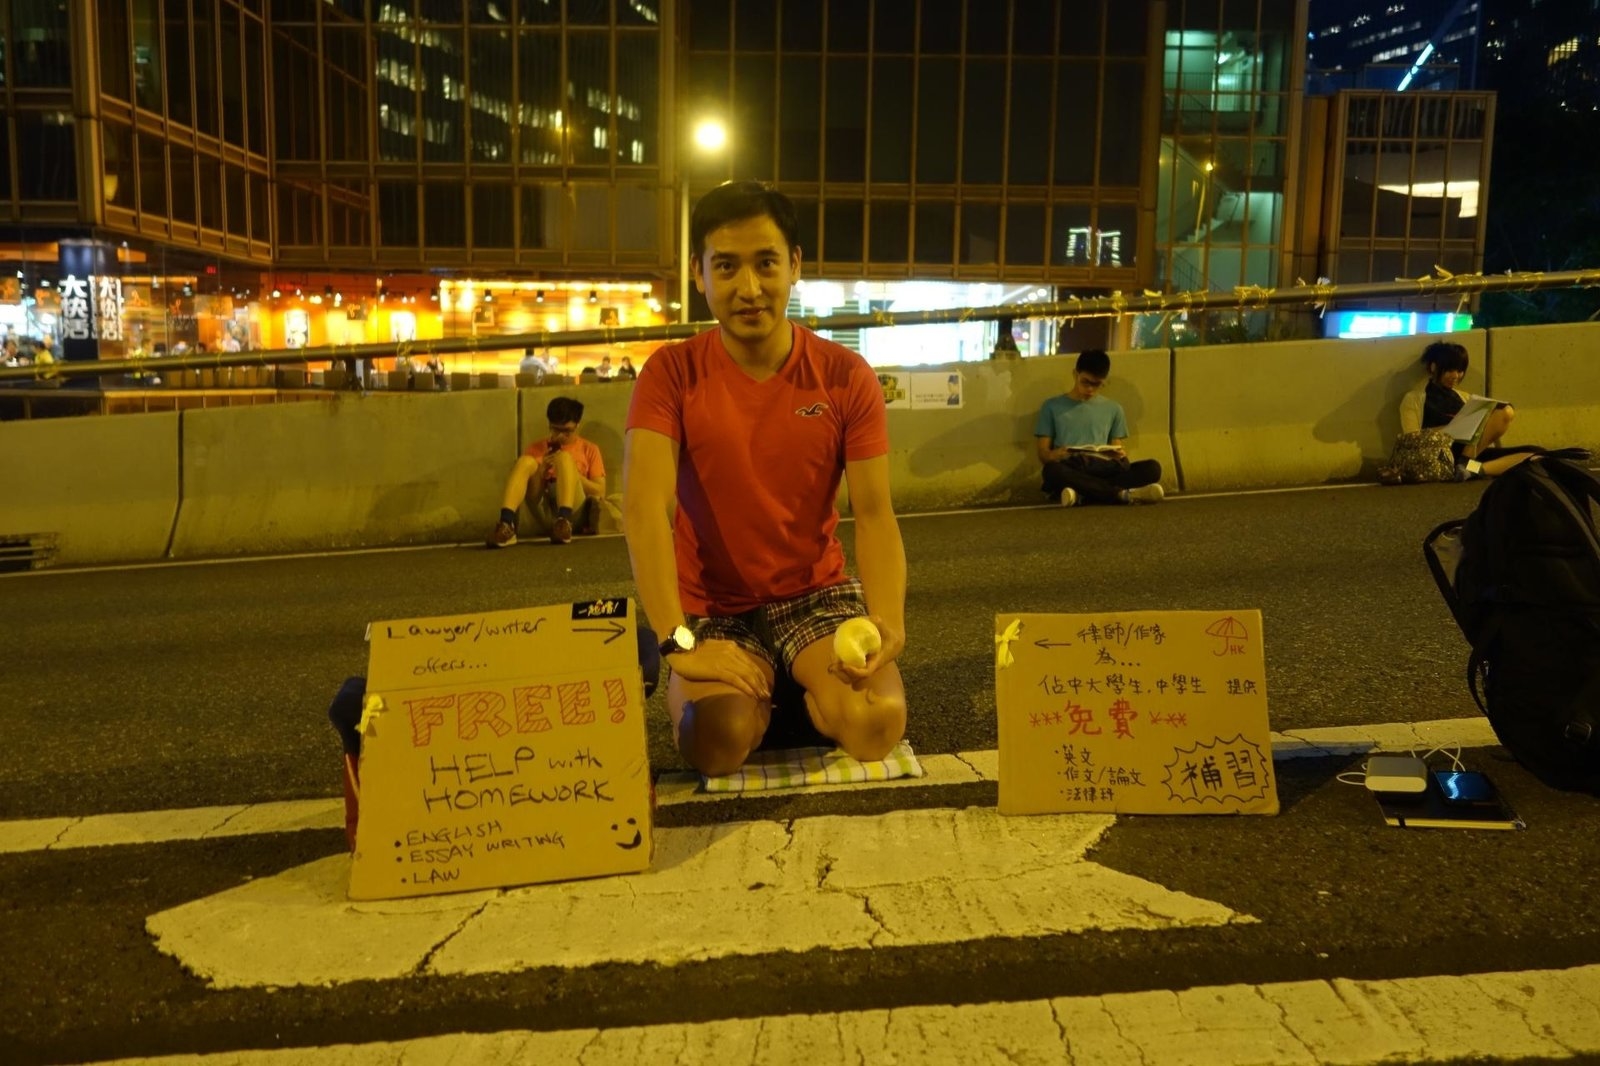 大快活
大快活
一起撐!
Lawyer/writer
offers...
FREE!
HELP with
HOMEWORK
• ENGLISH
• ESSAY WRITING
• LAW
律師/作家
為...
佔中大學生,中學生 提供
***免費***
• 英文
• 作文/論文
• 法律科
補習
HK